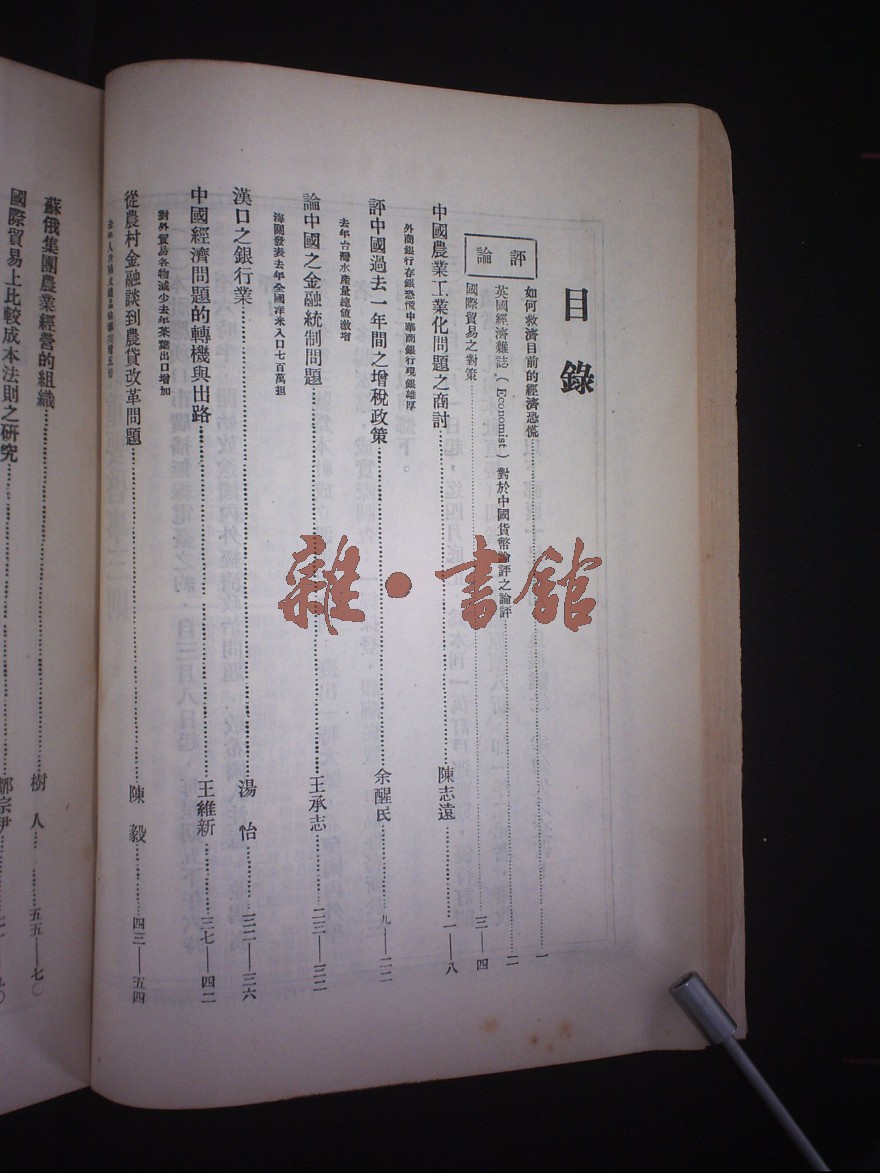 目錄
評論
如何救濟目前的經濟恐慌……一
英國經濟雜誌（Economist）對於中國貨幣論評之論評……二
國際貿易之對策……三—四
中國農業工業化問題之商討……陳志遠……一—八
外商銀行存銀恐慌中華商銀行現銀雄厚
評中國過去一年間之增稅政策……余醒民……九—二二
去年台灣水產量總值激增
論中國之金融統制問題……王承志……二三—三二
海關發表去年全國洋米入口七百萬担
漢口之銀行業……湯怡……三二—三六
中國經濟問題的轉機與出路……王維新……三七—四二
對外貿易各物減少去年茶葉出口增加
從農村金融談到農貸改革問題……陳毅……四三—五四
蘇俄集團農業經營的組織……樹人……五五—七〇
國際貿易上比較成本法則之研究
雜·書館